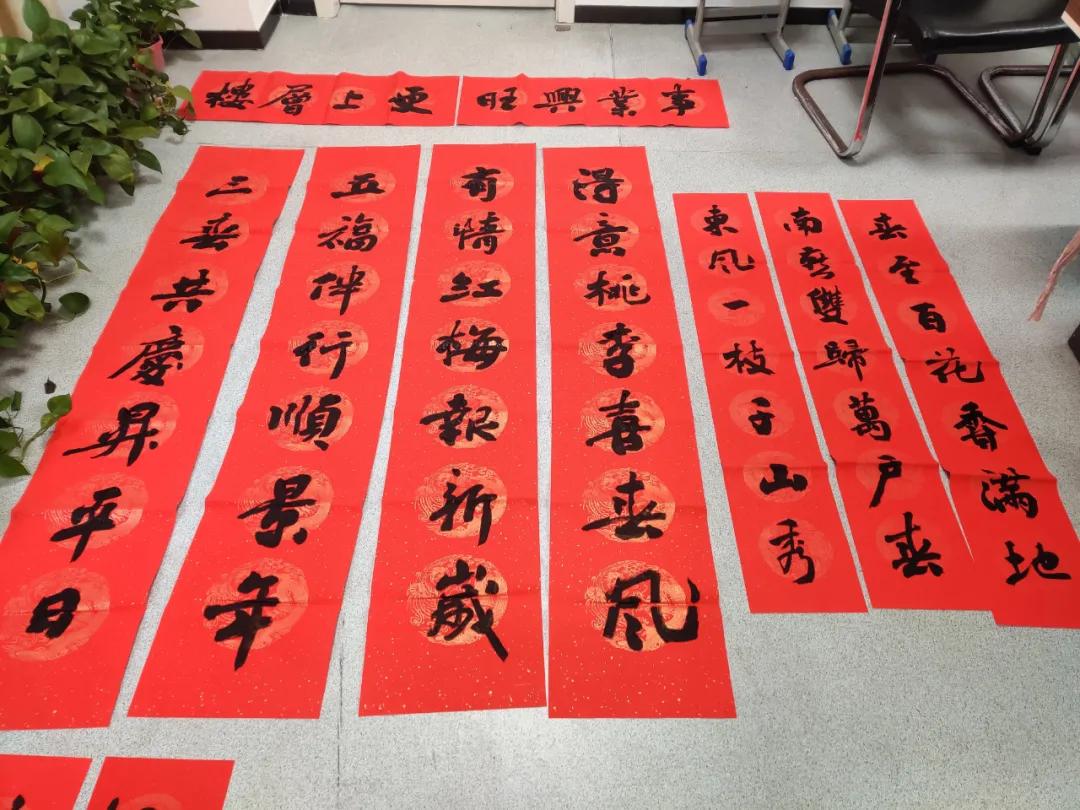 事業興旺
更上層樓
春至百花香滿地
南燕雙歸萬戶春
東風一枝千山秀
得意桃李喜春風
有情紅梅報新歲
五福伴行順景年
三春共慶昇平日